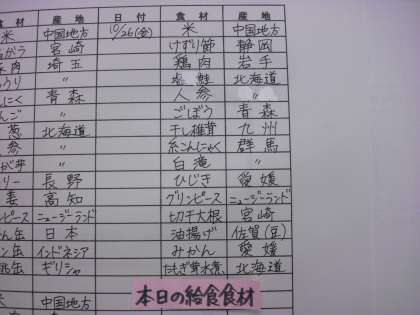 材 産地 日付 食材 産地
米 中国地方 10/26(金) 米 中国地方
宮崎 けずり節 静岡
肉 埼玉 鶏肉 岩手
うり 〃 塩鮭 北海道
にく 青森 人参 〃
んご 〃 ごぼう 青森
葱 北海道 干し椎茸 九州
参 〃 糸こんにゃく 群馬
が芋 〃 白滝 〃
リー 長野 ひじき 愛媛
高知 グリンピース ニュージーランド
ピース ニュージーランド 切干大根 宮崎
ん缶 日本 油揚げ 佐賀(豆)
ン缶 インドネシア みかん 愛媛
桃缶 ギリシャ たもぎ茸水煮 北海道
米 中国地方
本日の給食食材